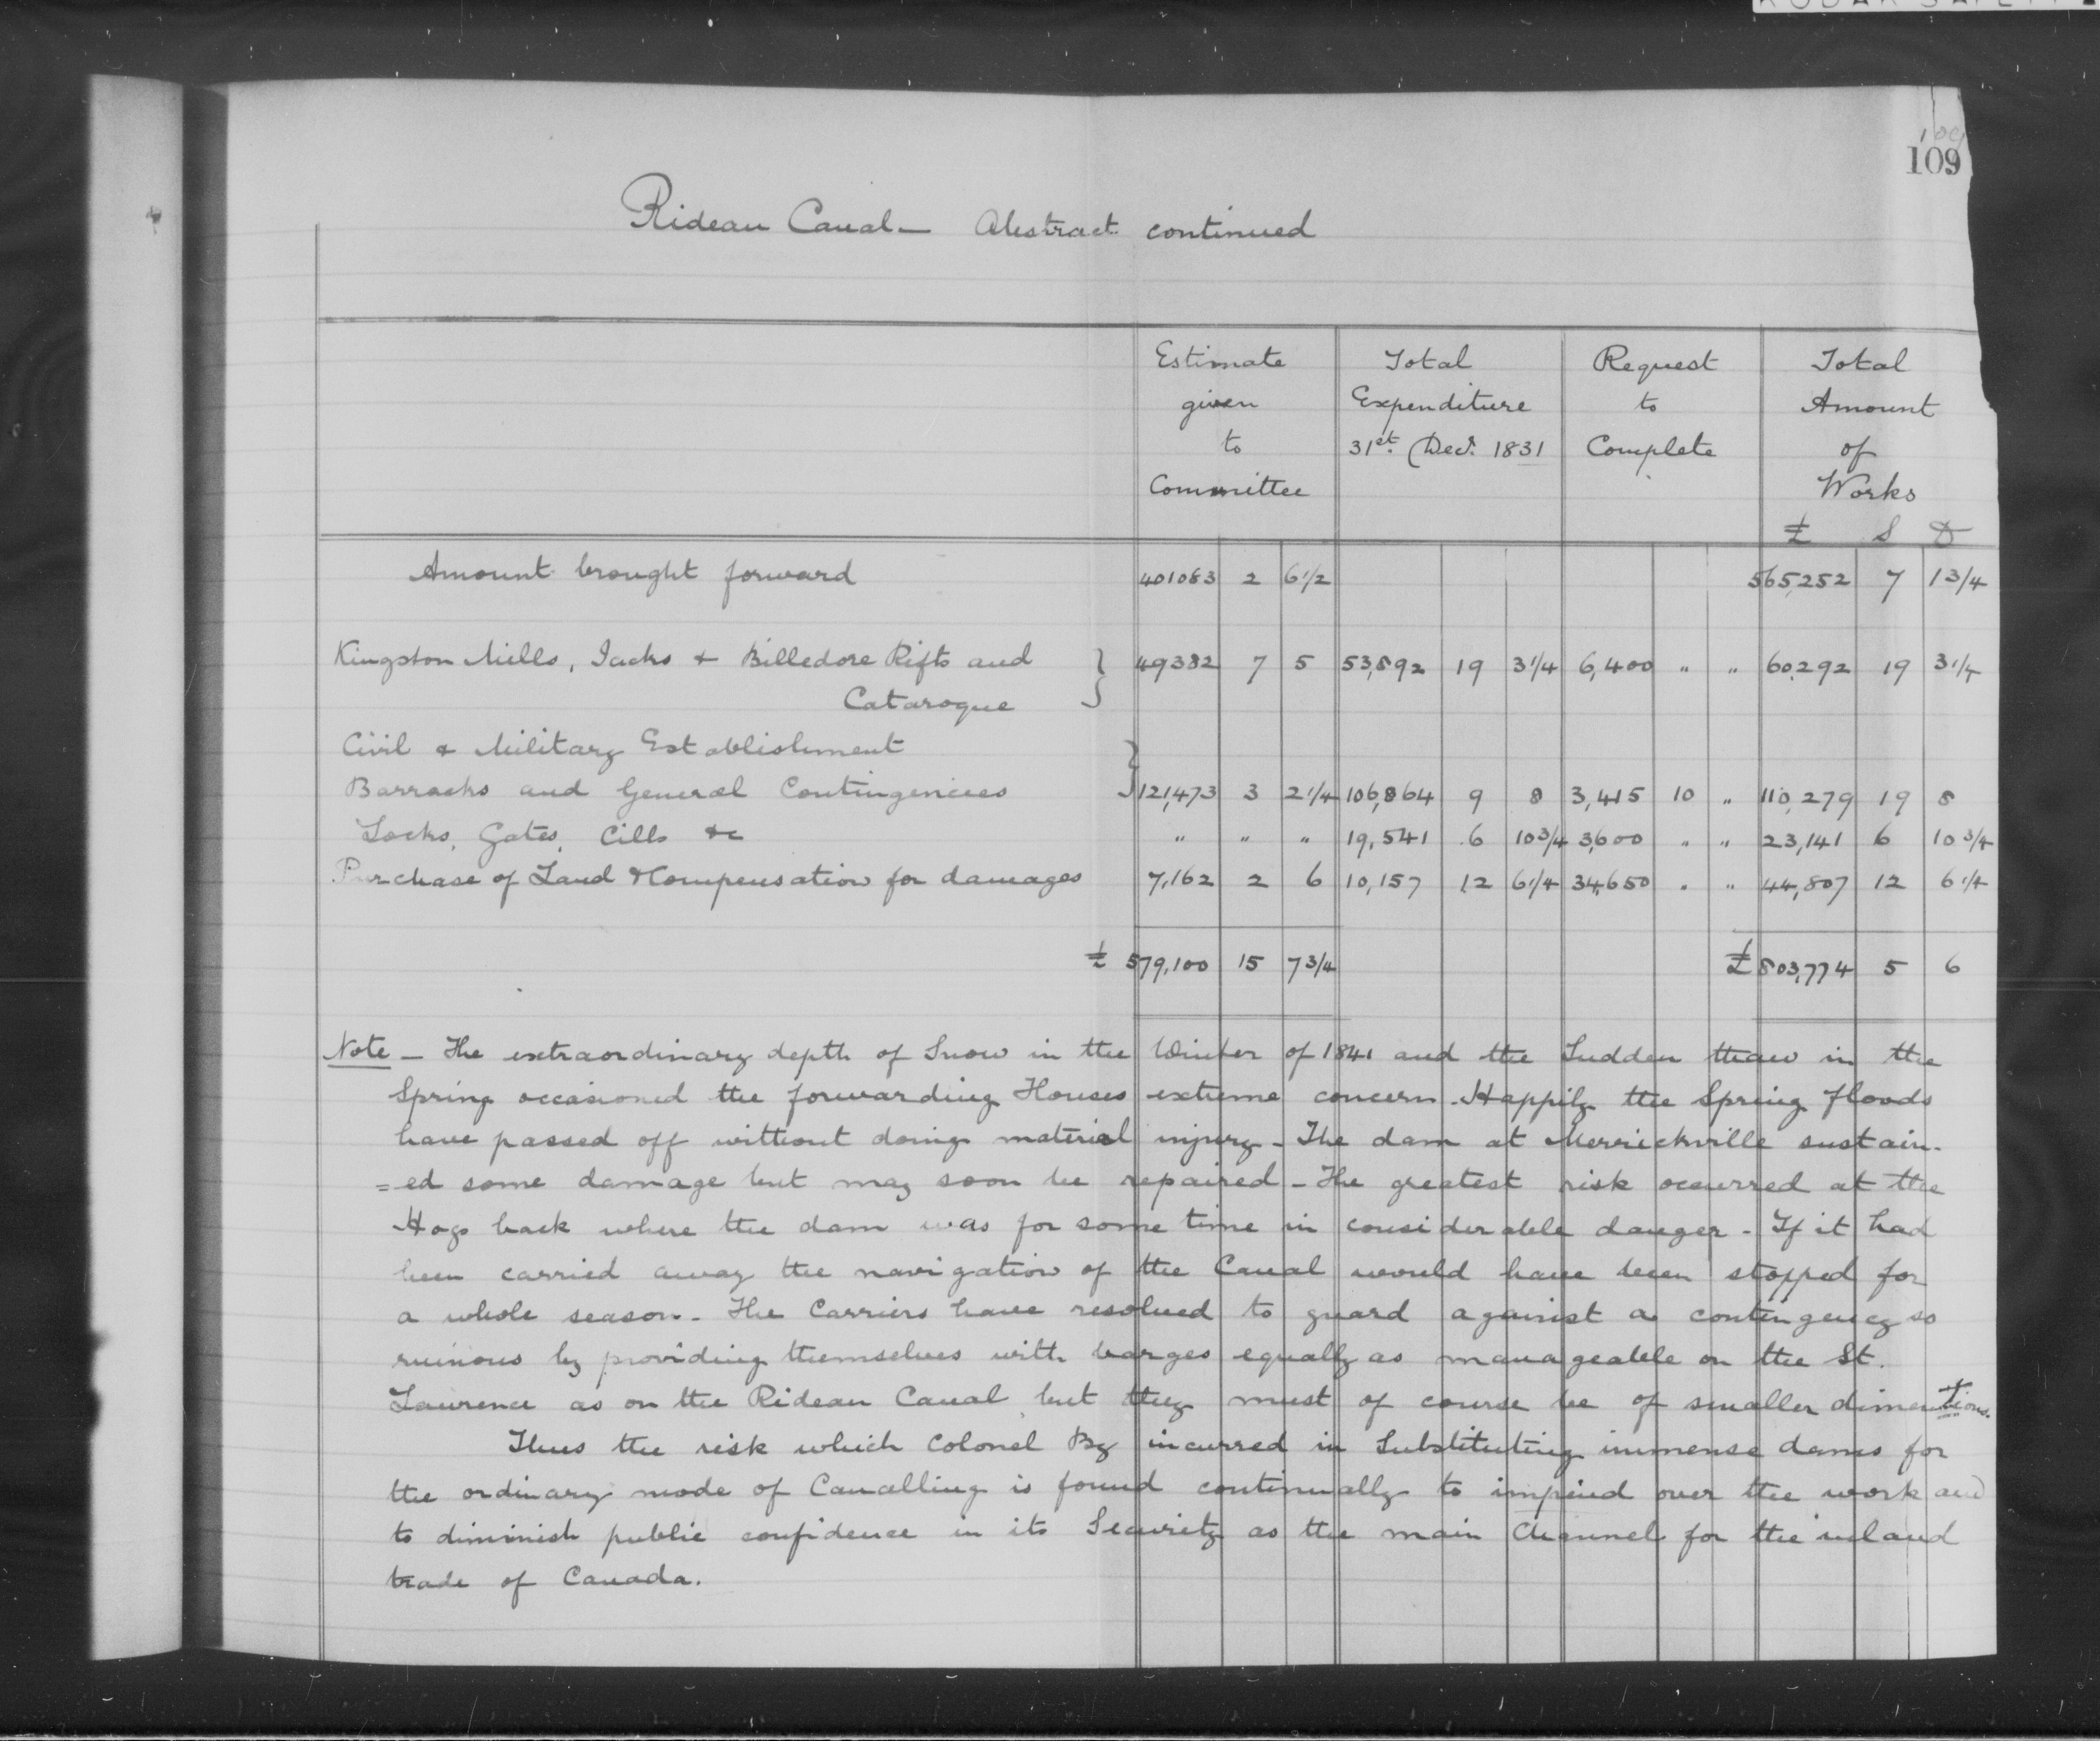 109
109
Rideau Canal — Abstract continued
Estimate given to Committee | Total Expenditure 31st. Decr. 1831 | Request to Complete | Total Amount of Works
£ S D
Amount brought forward 401083 2 6 1/2 565,252 7 1 3/4
Kingston Mills, Jacks & Billedore Rifts and } 49382 7 5 53,892 19 3 1/4 6,400 " " 60,292 19 3 1/4
Cataroque
Civil & Military Establishment }
Barracks and General Contingencies 121,473 3 2 1/4 106,864 9 8 3,415 10 " 110,279 19 8
Locks, Gates, Cills &c " " " 19,541 6 10 3/4 3,600 " " 23,141 6 10 3/4
Purchase of Land & Compensation for damages 7,162 2 6 10,157 12 6 1/4 34,650 " " 44,807 12 6 1/4
£ 579,100 15 7 3/4 £ 803,774 5 6
Note — The extraordinary depth of Snow in the Winter of 1841 and the Sudden thaw in the
Spring occasioned the forwarding Houses extreme concern. Happily the Spring floods
have passed off without doing material injury — The dam at Merrickville sustain-
=ed some damage but may soon be repaired — The greatest risk occurred at the
Hogs back where the dam was for some time in considerable danger — If it had
been carried away the navigation of the Canal would have been stopped for
a whole season — The Carriers have resolved to guard against a contingency so
ruinous by providing themselves with barges equally as manageable on the St.
Laurence as on the Rideau Canal, but they must of course be of smaller dimentions.
Thus the risk which Colonel By incurred in Substituting immense dams for
the ordinary mode of Canalling is found continually to impend over the work and
to diminish public confidence in its Security as the main Channel for the inland
trade of Canada.